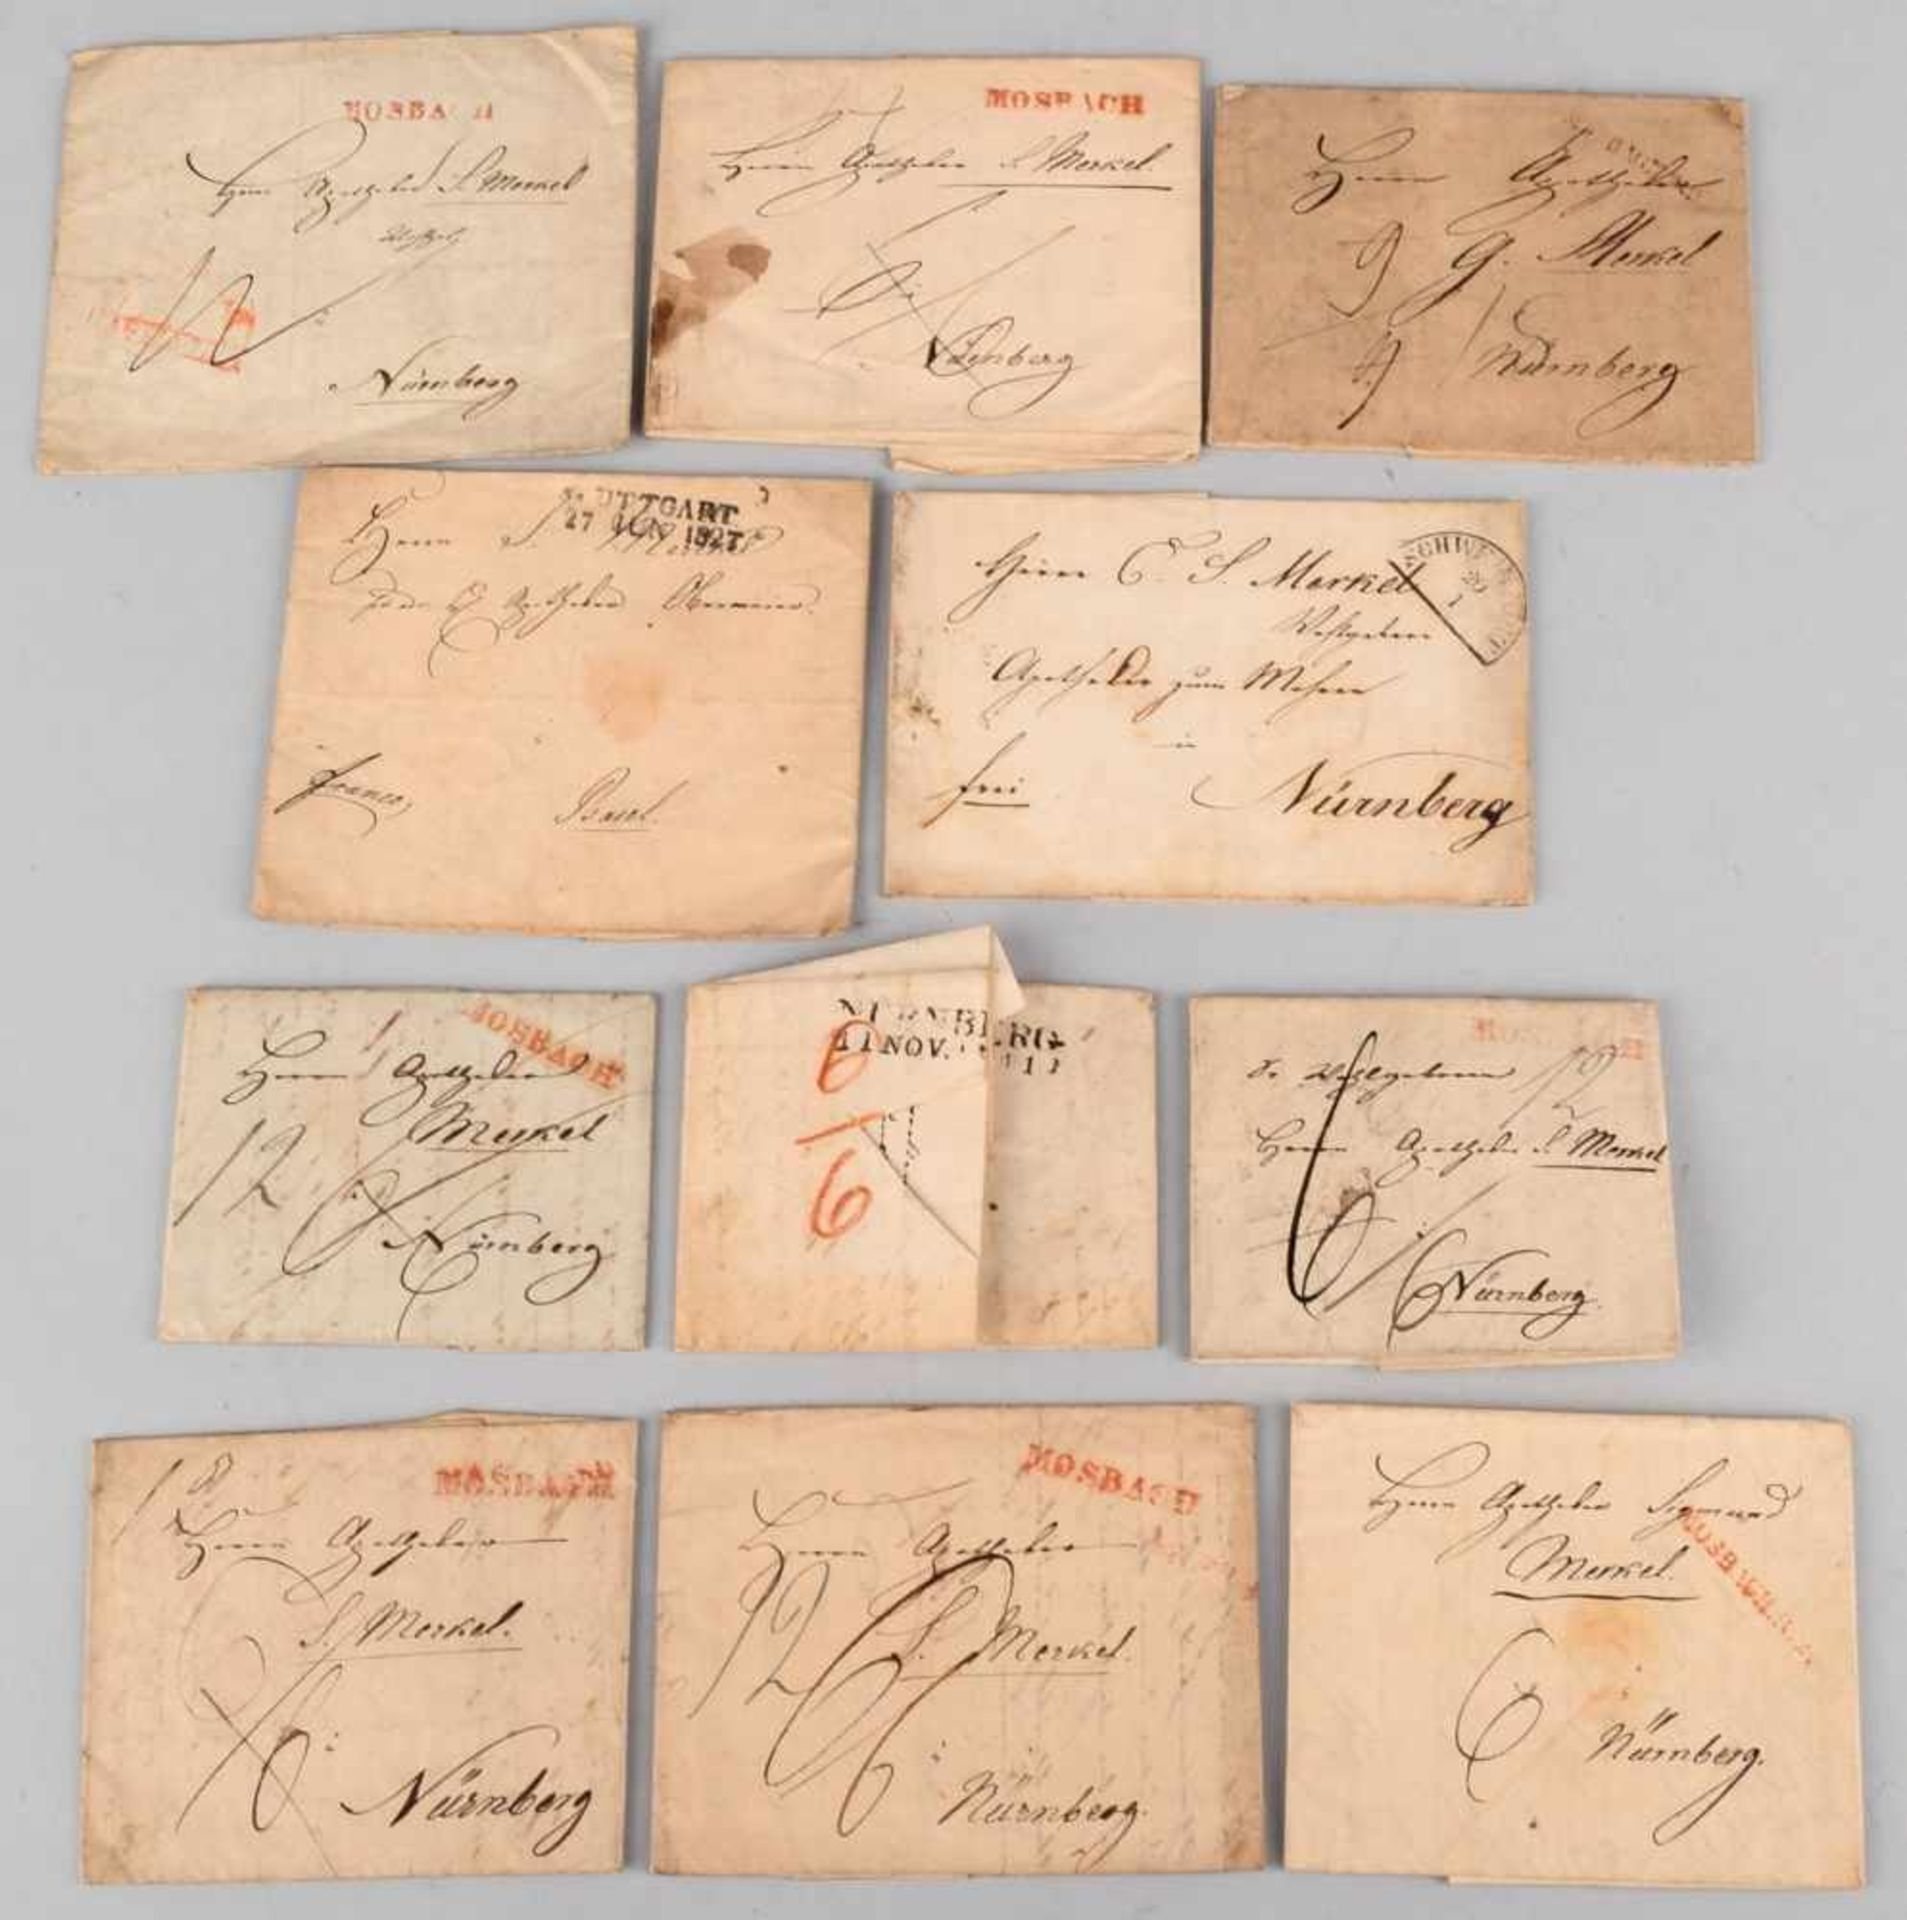 MOSBACH
Herrn Apotheker S. Merkel
Nürnberg
MOSBACH
Herrn Apotheker S. Merkel.
Nürnberg
Herrn Apotheker
G. Merkel
9
Nürnberg
STUTTGART
27 JUN 1827
Herrn S.
Apotheker Obermeier.
franco,
Basel.
Herrn C. S. Merkel
Wohlgeboren
Apotheker zum Mohren
in
frei
Nürnberg
MOSBACH
Herrn Apotheker
Merkel
12
Nürnberg
NÜRNBERG
11 NOV.
6
6
MOSBACH
Sr Wohlgeboren
12
Herrn Apotheker S. Merkel
6
Nürnberg
MOSBACH
Herrn Apotheker
S. Merkel.
Nürnberg
MOSBACH
Herrn Apotheker
12
S. Merkel.
Nürnberg.
Herrn Apotheker Sigmund
MOSBACH
Merkel.
6
Nürnberg.